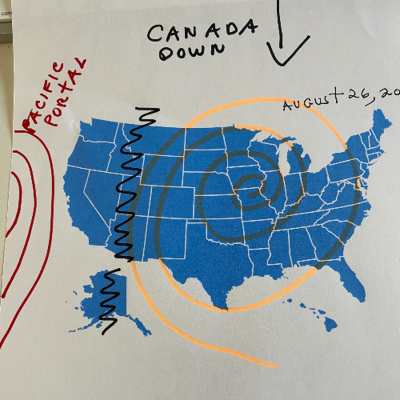 CANADA
DOWN
PACIFIC
PORTAL
AUGUST 26, 20